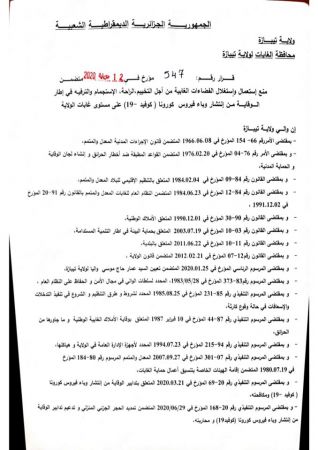 الجمهوريـــة الجزائريـة الديمقراطيـــة الشعبيـــة
ولاية تيبازة
محافظة الغابات لولاية تيبازة
قـرار رقـم: 547 مؤرخ في 12 2020 متضمن
منع إستعمال وإستغلال الفضاءات الغابية من أجل التخييم،الراحة، الإستجمام والترفيه في إطار
الوقـايـة مـن إنتشار وباء فيروس كورونا ( كوفيد -19) على مستوى غابات الولاية
إن والـي ولايـة تيبـازة
- بمقتضى الأمررقم 66– 154 المؤرخ في 1966.06.08 المتضمن قانون الإجراءات المدنية المعدل والمتمم،
- و بمقتضى الأمر رقم 76–04 المؤرخ في 1976.02.20 المتضمن القواعد المطبقة ضد أخطار الحرائق و إنشاء لجان الوقاية
و الحماية المدنية.
- و بمقتضى القانون رقم 84–09 المؤرخ في 1984.02.04 المتعلق بالتنظيم الإقليمي للبلاد المعدل والمتمم،
- و بمقتضى القانون رقم 84–12 المؤرخ في 1984.06.23 المتضمن النظام العام للغابات المعدل والمتمم بالقانون رقم 91–20 المؤرخ
في 1991.12.02
- و بمقتضى القانون رقم 90–30 المؤرخ في 1990.12.01 المتعلق بالأملاك الوطنية.
- و بمقتضى القانون رقم 03–10 المؤرخ في 2003.07.19 المتعلق بحماية البيئة في إطار التنمية المستدامة.
- و بمقتضى القانون رقم 11–10 المؤرخ في 2011.06.22 المتعلق بالبلدية.
- و بمقتضى القانون رقم12–07 المؤرخ في 2012.02.21 المتضمن قانون الولاية
- و بمقتضى المرسوم الرئاسي المؤرخ في 2020.01.25 المتضمن تعيين السيد عمار حاج موسى واليا لولاية تيبازة.
- و بمقتضى المرسوم رقم83–373 المؤرخ في 1983/05/28، المحدد لسلطات الوالي في مجال الأمن و الحفاظ على النظام العام ،
- و بمقتضى المرسوم رقم 85–231 المؤرخ في 1985.08.25 المحدد لشروط و طرق التنظيم و الشروع في تنفيذ التدخلات
والإسعافات في حالة وقوع كارثة.
- و بمقتضى المرسوم التنفيذي رقم 87–44 المؤرخ في 10 فيفر 1987 المتعلق بوقاية الأملاك الغابية الوطنية و ما جاورها من
الحرائق.
- و بمقتضى المرسوم التنفيذي رقم 94–215 المؤرخ في 1994.07.23 المحدد لأجهزة الإدارة العامة في الولاية و هياكلها،
- و بمقتضى المرسوم التنفيذي رقم 07–301 المؤرخ في 2007.09.27 المعدل والمتمم المرسوم رقم 80–184 المؤرخ
في 1980.07.19 المتضمن إقامة الهيئات الخاصة بتنسيق أعمال حماية الغابات.
- و بمقتضى المرسوم التنفيذي رقم 20–69 المؤرخ في 2020.03.21 المتعلق بتدابير الوقاية من إنتشار وباء فيروس كورونا
( كوفيد -19) ومكافحته.
- و بمقتضى المرسوم التنفيذي رقم 20–168 المؤرخ في 2020/06/29 المتضمن تمديد الحجر الجزئي المنزلي و تدعيم تدابير الوقاية
من إنتشار وباء فيروس كورونا (كوفيد -19) و محاربته.